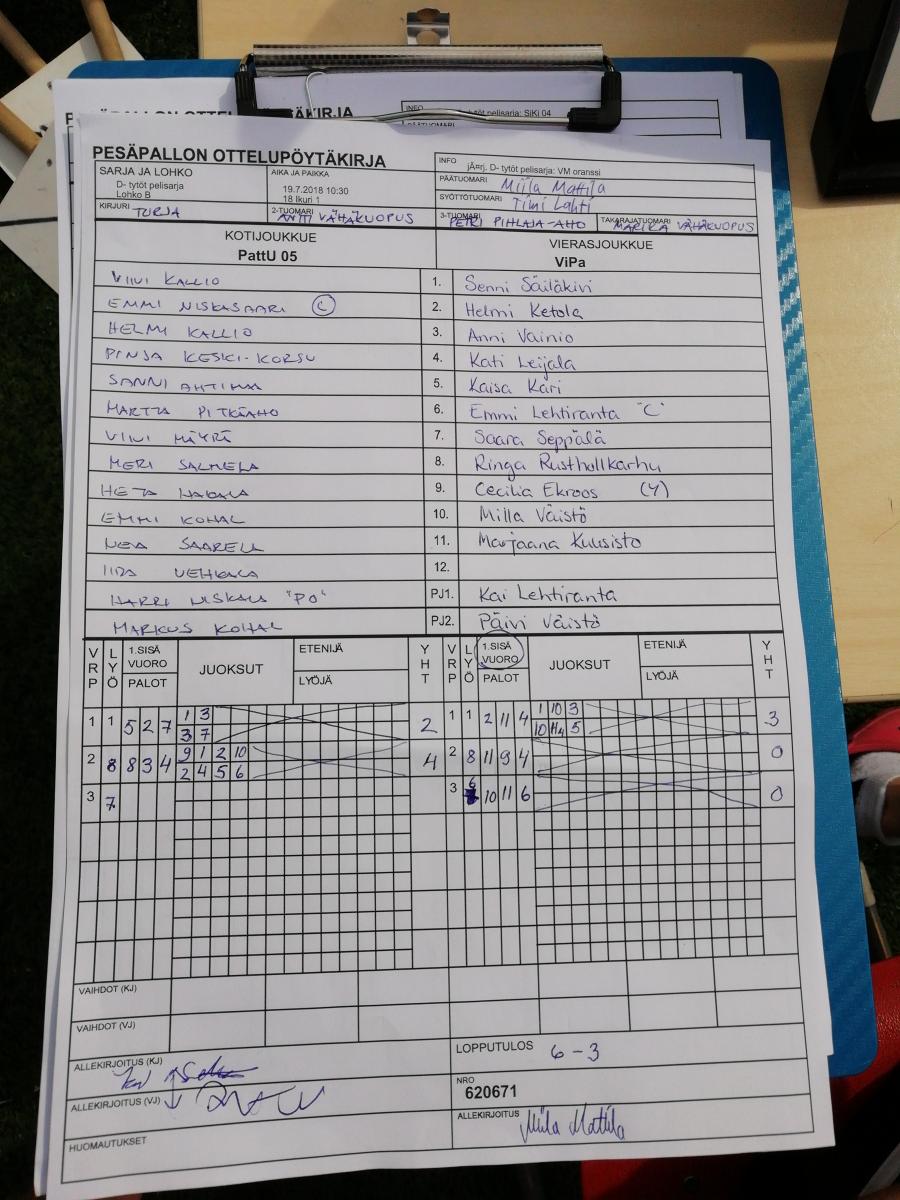 PESÄPALLON OTTELUPÖYTÄKIRJA
INFO
pelisarja: SiKi 04
PESÄPALLON OTTELUPÖYTÄKIRJA
INFO jÃ¤rj. D- tytöt pelisarja: VM oranssi
SARJA JA LOHKO
D- tytöt pelisarja
Lohko B
AIKA JA PAIKKA
19.7.2018 10:30
18 Ikuri 1
PÄÄTUOMARI Miila Mattila
SYÖTTÖTUOMARI Timi Lahti
KIRJURI TURJA
2-TUOMARI ANTTI VÄHÄKUOPUS
3-TUOMARI PETRI PIHLAJA-AHO
TAKARAJATUOMARI MARIKA VÄHÄKUOPUS
KOTIJOUKKUE
PattU 05
VIERASJOUKKUE
ViPa
VIIVI KALLIO 1. Senni Säiläkivi
EMMI NISKASAARI (C) 2. Helmi Ketola
HELMI KALLIO 3. Anni Vainio
PINJA KESKI-KORSU 4. Kati Leijala
SANNI 5. Kaisa Kari
MARTTA PITKÄAHO 6. Emmi Lehtiranta "C"
VIIVI MÄYRÄ 7. Saara Seppälä
MERI SALMELA 8. Ringa Rusthollkarhu
HETA HAKALA 9. Cecilia Ekroos (Y)
EMMI KOHAL 10. Milla Väistö
NEEA SAARELL 11. Marjaana Kuusisto
IIDA VEHKALA 12.
HARRI NISKALA "PO" PJ1. Kai Lehtiranta
MARKUS KOHAL PJ2. Päivi Väistö
VRP LYÖ 1.SISÄ VUORO PALOT JUOKSUT ETENIJÄ LYÖJÄ YHT VRP LYÖ 1.SISÄ VUORO PALOT JUOKSUT ETENIJÄ LYÖJÄ YHT
1 1 5 2 7 1 3 2 1 1 2 11 4 1 10 3 3
3 7 10 5
2 8 8 3 4 9 1 2 10 4 2 8 11 9 4 0
2 4 5 6
3 7 3 6 10 11 6 0
VAIHDOT (KJ)
VAIHDOT (VJ)
ALLEKIRJOITUS (KJ)
LOPPUTULOS 6-3
ALLEKIRJOITUS (VJ)
NRO
620671
HUOMAUTUKSET
ALLEKIRJOITUS Miila Mattila